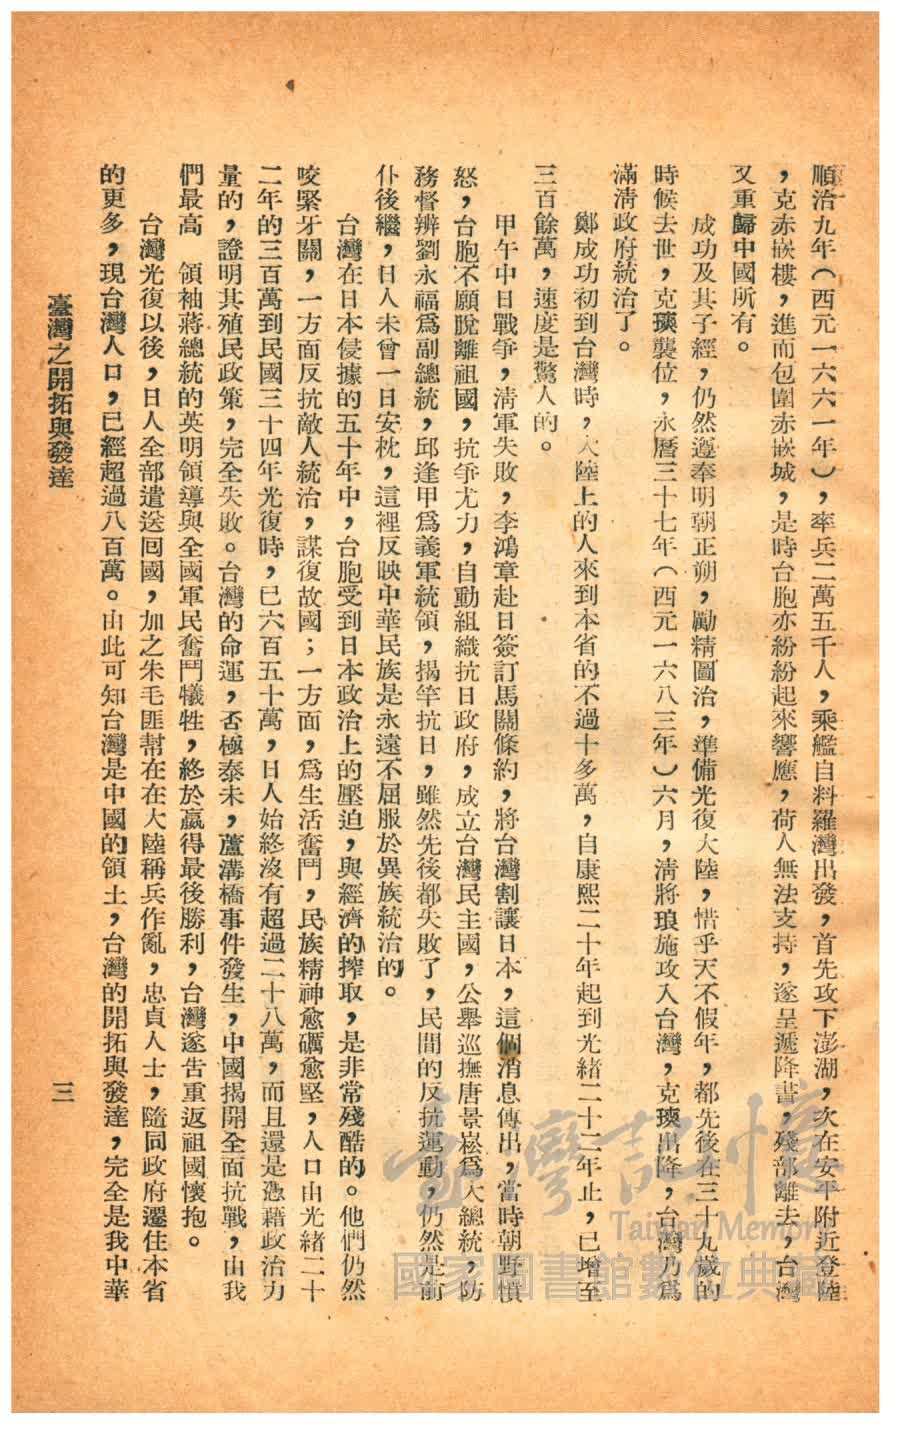 順治九年（西元一六六一年），率兵二萬五千人，乘艦自料羅灣出發，首先攻下澎湖，次在安平附近登陸
，克赤嵌樓，進而包圍赤嵌城，是時台胞亦紛紛起來響應，荷人無法支持，遂呈遞降書，殘部離去，台灣
又重歸中國所有。
成功及其子經，仍然遵奉明朝正朔，勵精圖治，準備光復大陸，惜乎天不假年，都先後在三十九歲的
時候去世，克塽襲位，永曆三十七年（西元一六八三年）六月，淸將琅施攻入台灣，克塽出降，台灣乃爲
滿淸政府統治了。
鄭成功初到台灣時，大陸上的人來到本省的不過十多萬，自康熙二十年起到光緒二十二年止，已增至
三百餘萬，速度是驚人的。
甲午中日戰爭，淸軍失敗，李鴻章赴日簽訂馬關條約，將台灣割讓日本，這個消息傳出，當時朝野憤
怒，台胞不願脫離祖國，抗爭尤力，自動組織抗日政府，成立台灣民主國，公舉巡撫唐景崧爲大總統，防
務督辨劉永福爲副總統，邱逢甲爲義軍統領，揭竿抗日，雖然先後都失敗了，民間的反抗運動，仍然是前
仆後繼，日人未曾一日安枕，這裡反映中華民族是永遠不屈服於異族統治的。
台灣在日本侵據的五十年中，台胞受到日本政治上的壓迫，與經濟的搾取，是非常殘酷的。他們仍然
咬緊牙關，一方面反抗敵人統治，謀復故國；一方面，爲生活奮鬥，民族精神愈礪愈堅，人口由光緒二十
二年的三百萬到民國三十四年光復時，已六百五十萬，日人始終沒有超過二十八萬，而且還是憑藉政治力
量的，證明其殖民政策，完全失敗。台灣的命運，否極泰未，蘆溝橋事件發生，中國揭開全面抗戰，由我
們最高　領袖蔣總統的英明領導與全國軍民奮鬥犧牲，終於贏得最後勝利，台灣遂告重返祖國懷抱。
台灣光復以後，日人全部遣送囘國，加之朱毛匪幫在在大陸稱兵作亂，忠貞人士，隨同政府遷住本省
的更多，現台灣人口，已經超過八百萬。由此可知台灣是中國的領土，台灣的開拓與發達，完全是我中華
臺灣之開拓與發達
三
臺灣記憶
Taiwan Memory
國家圖書館數位典藏